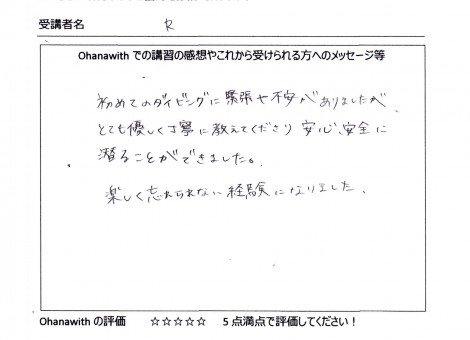 受講者名 R
Ohanawith での講習の感想やこれから受けられる方へのメッセージ等
初めてのダイビングに緊張や不安がありましたが、
とても優しく丁寧に教えてくださり安心、安全に
潜ることができました。
楽しく忘れられない経験になりました、
Ohanawith の評価 ☆☆☆☆☆ 5 点満点で評価してください！